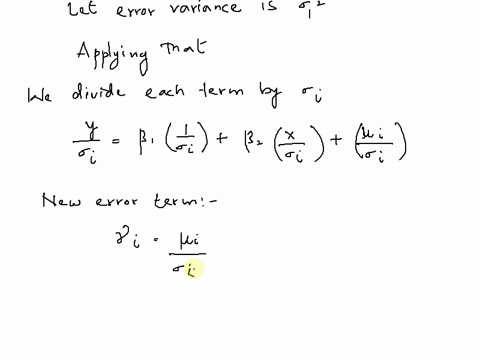 Let error variance is σi²
Applying that
We divide each term by σi
y/σi = β1 (1/σi) + β2 (x/σi) + (μi/σi)
New error term:-
γi = μi/σi